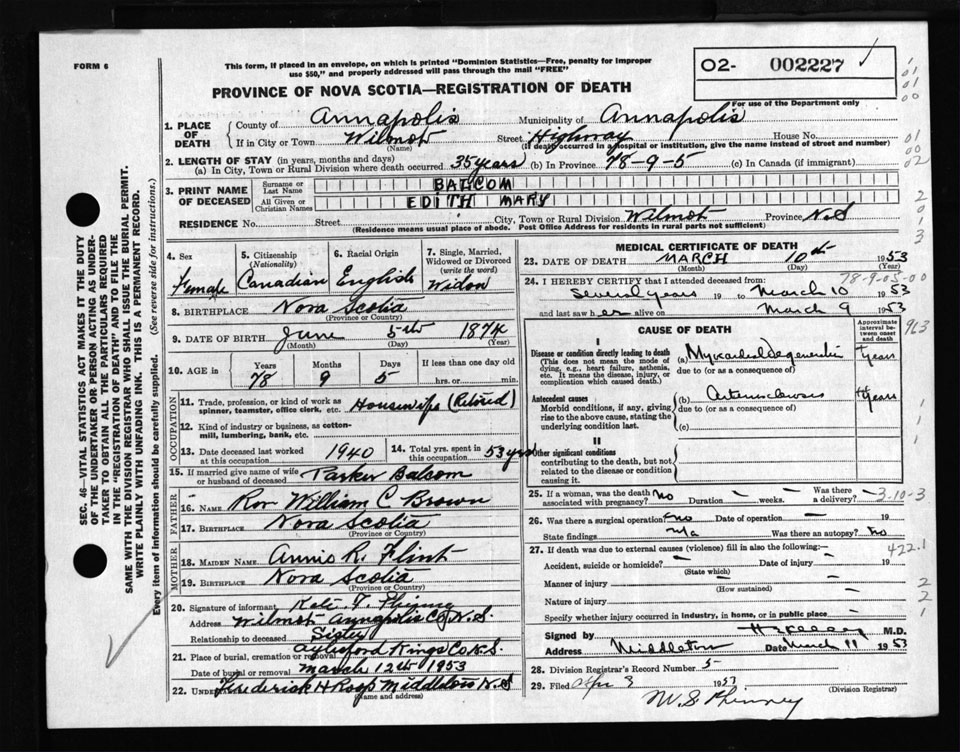 FORM 6
This form, if placed in an envelope, on which is printed "Dominion Statistics—Free, penalty for improper
use $50," and properly addressed will pass through the mail "FREE"
PROVINCE OF NOVA SCOTIA—REGISTRATION OF DEATH
02- 002227
For use of the Department only
1. PLACE OF DEATH
County of Annapolis Municipality of Annapolis
If in City or Town Wilmot Street Highway House No.
(Name) (If death occurred in a hospital or institution, give the name instead of street and number)
2. LENGTH OF STAY (in years, months and days)
(a) In City, Town or Rural Division where death occurred 35 years (b) In Province 78-9-5 (c) In Canada (if immigrant)
3. PRINT NAME OF DECEASED
Surname or Last Name BALCOM
All Given or Christian Names EDITH MARY
RESIDENCE No. Street City, Town or Rural Division Wilmot Province N.S
(Residence means usual place of abode. Post Office Address for residents in rural parts not sufficient)
SEC. 46—VITAL STATISTICS ACT MAKES IT THE DUTY
OF THE UNDERTAKER OR PERSON ACTING AS UNDER-
TAKER TO OBTAIN ALL THE PARTICULARS REQUIRED
IN THE "REGISTRATION OF DEATH" AND TO FILE THE
SAME WITH THE DIVISION REGISTRAR WHO SHALL ISSUE THE BURIAL PERMIT.
WRITE PLAINLY WITH UNFADING INK. THIS IS A PERMANENT RECORD.
Every item of information should be carefully supplied. (See reverse side for instructions.)
4. Sex Female
5. Citizenship (Nationality) Canadian
6. Racial Origin English
7. Single, Married, Widowed or Divorced (write the word) Widow
8. BIRTHPLACE Nova Scotia
(Province or Country)
9. DATE OF BIRTH June 5th 1874
(Month) (Day) (Year)
10. AGE in Years 78 Months 9 Days 5 If less than one day old hrs. or min.
OCCUPATION
11. Trade, profession, or kind of work as spinner, teamster, office clerk, etc. Housewife (Retired)
12. Kind of industry or business, as cotton-mill, lumbering, bank, etc.
13. Date deceased last worked at this occupation 1940
14. Total yrs. spent in this occupation 53 yrs
15. If married give name of wife or husband of deceased Parker Balcom
FATHER
16. NAME Rev William C Brown
17. BIRTHPLACE Nova Scotia
(Province or Country)
MOTHER
18. MAIDEN NAME Annie R. Flint
19. BIRTHPLACE Nova Scotia
(Province or Country)
20. Signature of informant
Address Wilmot Annapolis Co N.S.
Relationship to deceased Sister
21. Place of burial, cremation or removal Aylesford Kings Co N.S.
Date of burial or removal March 12th 1953
22. Undertaker Frederick H Roop Middleton N.S
(Name and address)
MEDICAL CERTIFICATE OF DEATH
23. DATE OF DEATH MARCH 10th 1953
(Month) (Day) (Year)
78-9-05-00
24. I HEREBY CERTIFY that I attended deceased from:
Several years 19 to March 10 1953
and last saw her alive on March 9 1953
CAUSE OF DEATH
Approximate interval between onset and death
I
Disease or condition directly leading to death
(This does not mean the mode of dying, e.g., heart failure, asthenia, etc. It means the disease, injury, or complication which caused death.)
(a) Myocardial degeneration years
due to (or as a consequence of)
Antecedent causes
Morbid conditions, if any, giving rise to the above cause, stating the underlying condition last.
(b) Arteriosclerosis years
due to (or as a consequence of)
(c)
II
Other significant conditions
contributing to the death, but not related to the disease or condition causing it.
25. If a woman, was the death associated with pregnancy? No Duration — weeks. Was there a delivery? —
3-10-3
26. Was there a surgical operation? no Date of operation — 19
State findings n/a Was there an autopsy? no
27. If death was due to external causes (violence) fill in also the following:—
422.1
Accident, suicide or homicide? — Date of injury 19
(State which)
Manner of injury —
(How sustained)
Nature of injury —
Specify whether injury occurred in industry, in home, or in public place —
Signed by M.D.
Address Middleton Date March 11 1953
28. Division Registrar's Record Number 5
29. Filed Apr 3 195
(Division Registrar)